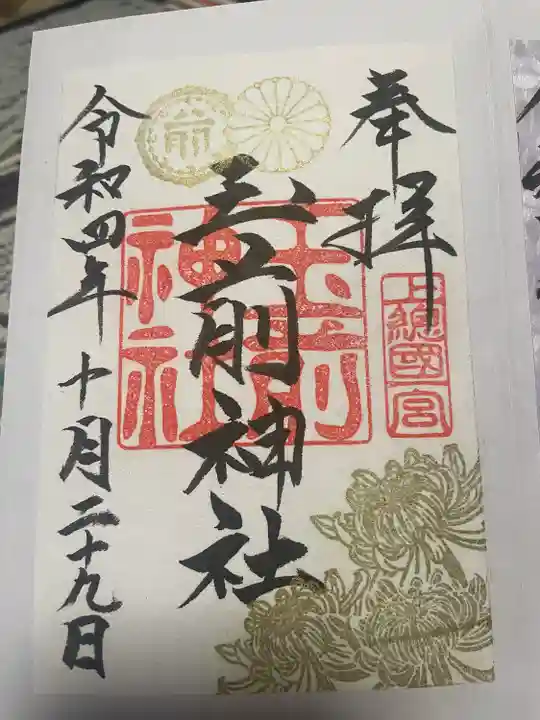 奉拝
上總國一宮
玉前神社
玉前神社
令和四年十月二十九日